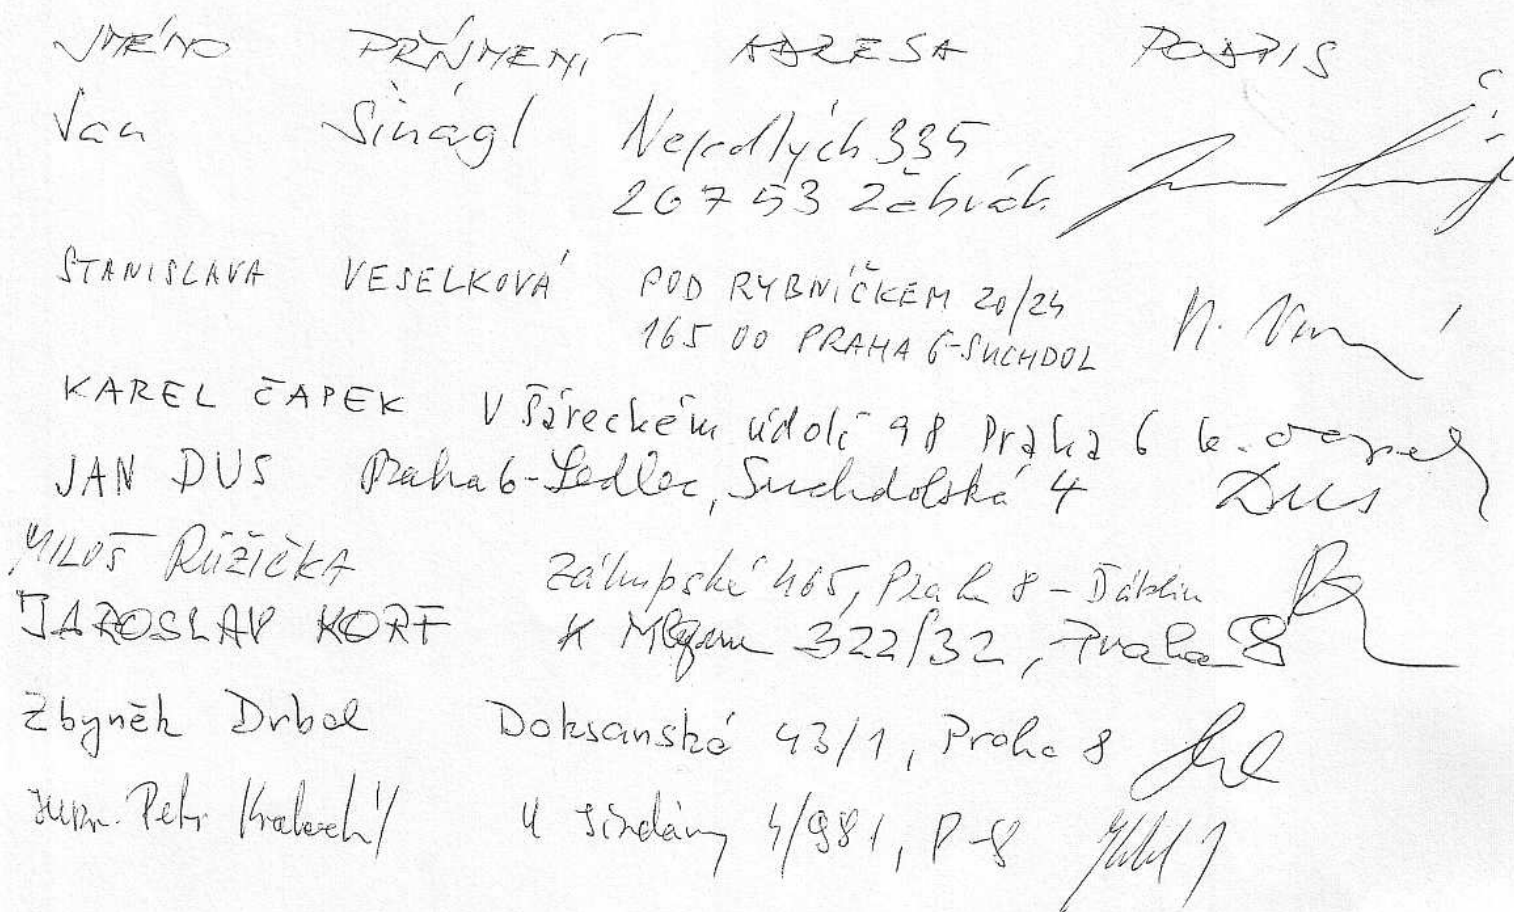 JMÉNO PŘÍJMENÍ ADRESA PODPIS
Jan Šinágl Nejedlých 335
267 53 Žebrák
STANISLAVA VESELKOVÁ POD RYBNÍČKEM 20/24
165 00 PRAHA 6-SUCHDOL
KAREL ČAPEK V Šáreckém údolí 98 Praha 6 K. Čapek
JAN DUS Praha 6-Sedlec, Suchdolská 4 Dus
MILOŠ RŮŽIČKA 465, Praha 8 - Ďáblice
JAROSLAV KORF K 322/32, Praha 8
Zbyněk Drbal Doksanská 43/1, Praha 8
JUDr. Petr U 4/981, P-8